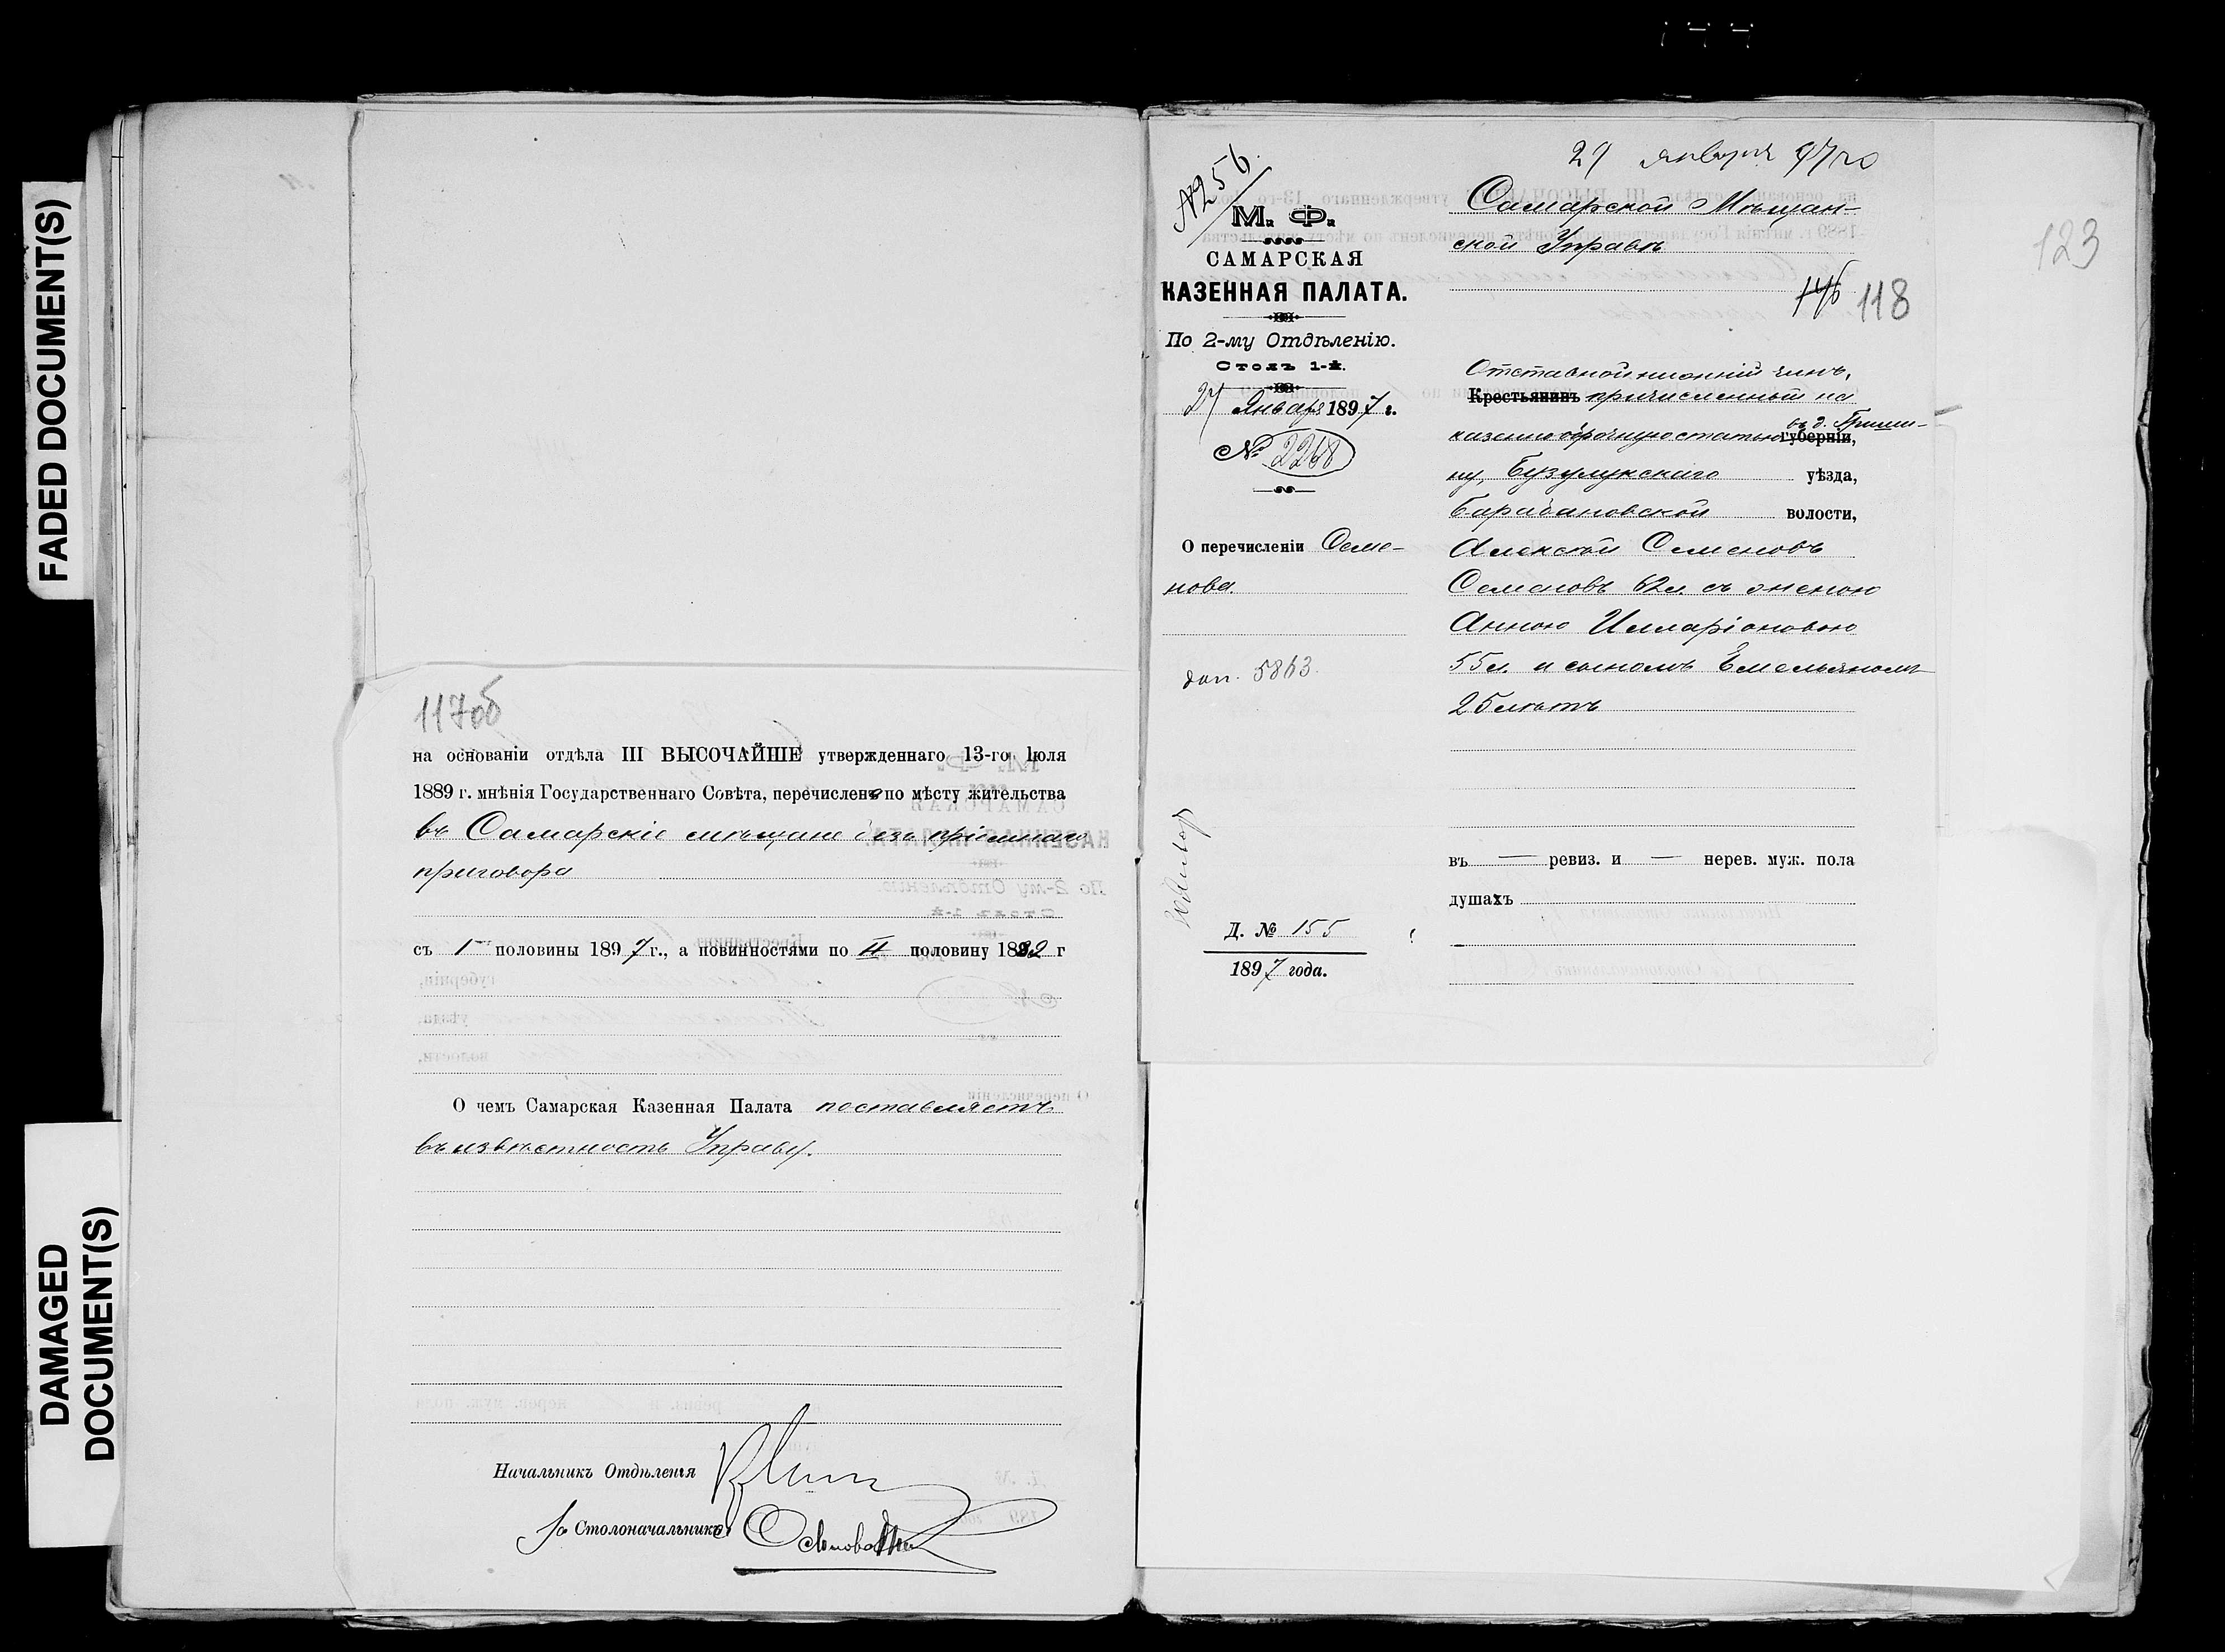 FADED DOCUMENT(S)
DAMAGED
DOCUMENT(S)
117об
на основаніи отдѣла III ВЫСОЧАЙШЕ утвержденнаго 13-го Іюля
1889 г. мнѣнія Государственнаго Совѣта, перечислены по мѣсту жительства
въ Самарскіе мѣщане безъ пріемнаго
приговора
съ 1 половины 1897 г., а повинностями по II половину 18 г
О чемъ Самарская Казенная Палата поставляетъ
въ извѣстность Управу.
Начальникъ Отдѣленія
За Столоначальника
№ 256.
М. Ф.
САМАРСКАЯ
КАЗЕННАЯ ПАЛАТА.
По 2-му Отдѣленію.
Столъ 1-й.
27 Января 1897 г.
№ 2268
О перечисленіи Семе-
нова.
доп. 5863.
Д. № 155
1897 года.
29 января 97 го
Самарской Мѣщан-
ской Управѣ
118
123
Отставной нижній чинъ,
Крестьянинъ причисленный на
казенно оброчную статью губерніи,
въ д. Гриши-
ну, Бузулукскаго уѣзда,
Барабановской волости,
Алексѣй Семеновъ
Семеновъ 62 л. съ женою
Анною Илларіоновою
55 л. и сыномъ Емельяномъ
25 лѣтъ
въ — ревиз. и — нерев. муж. пола
душахъ